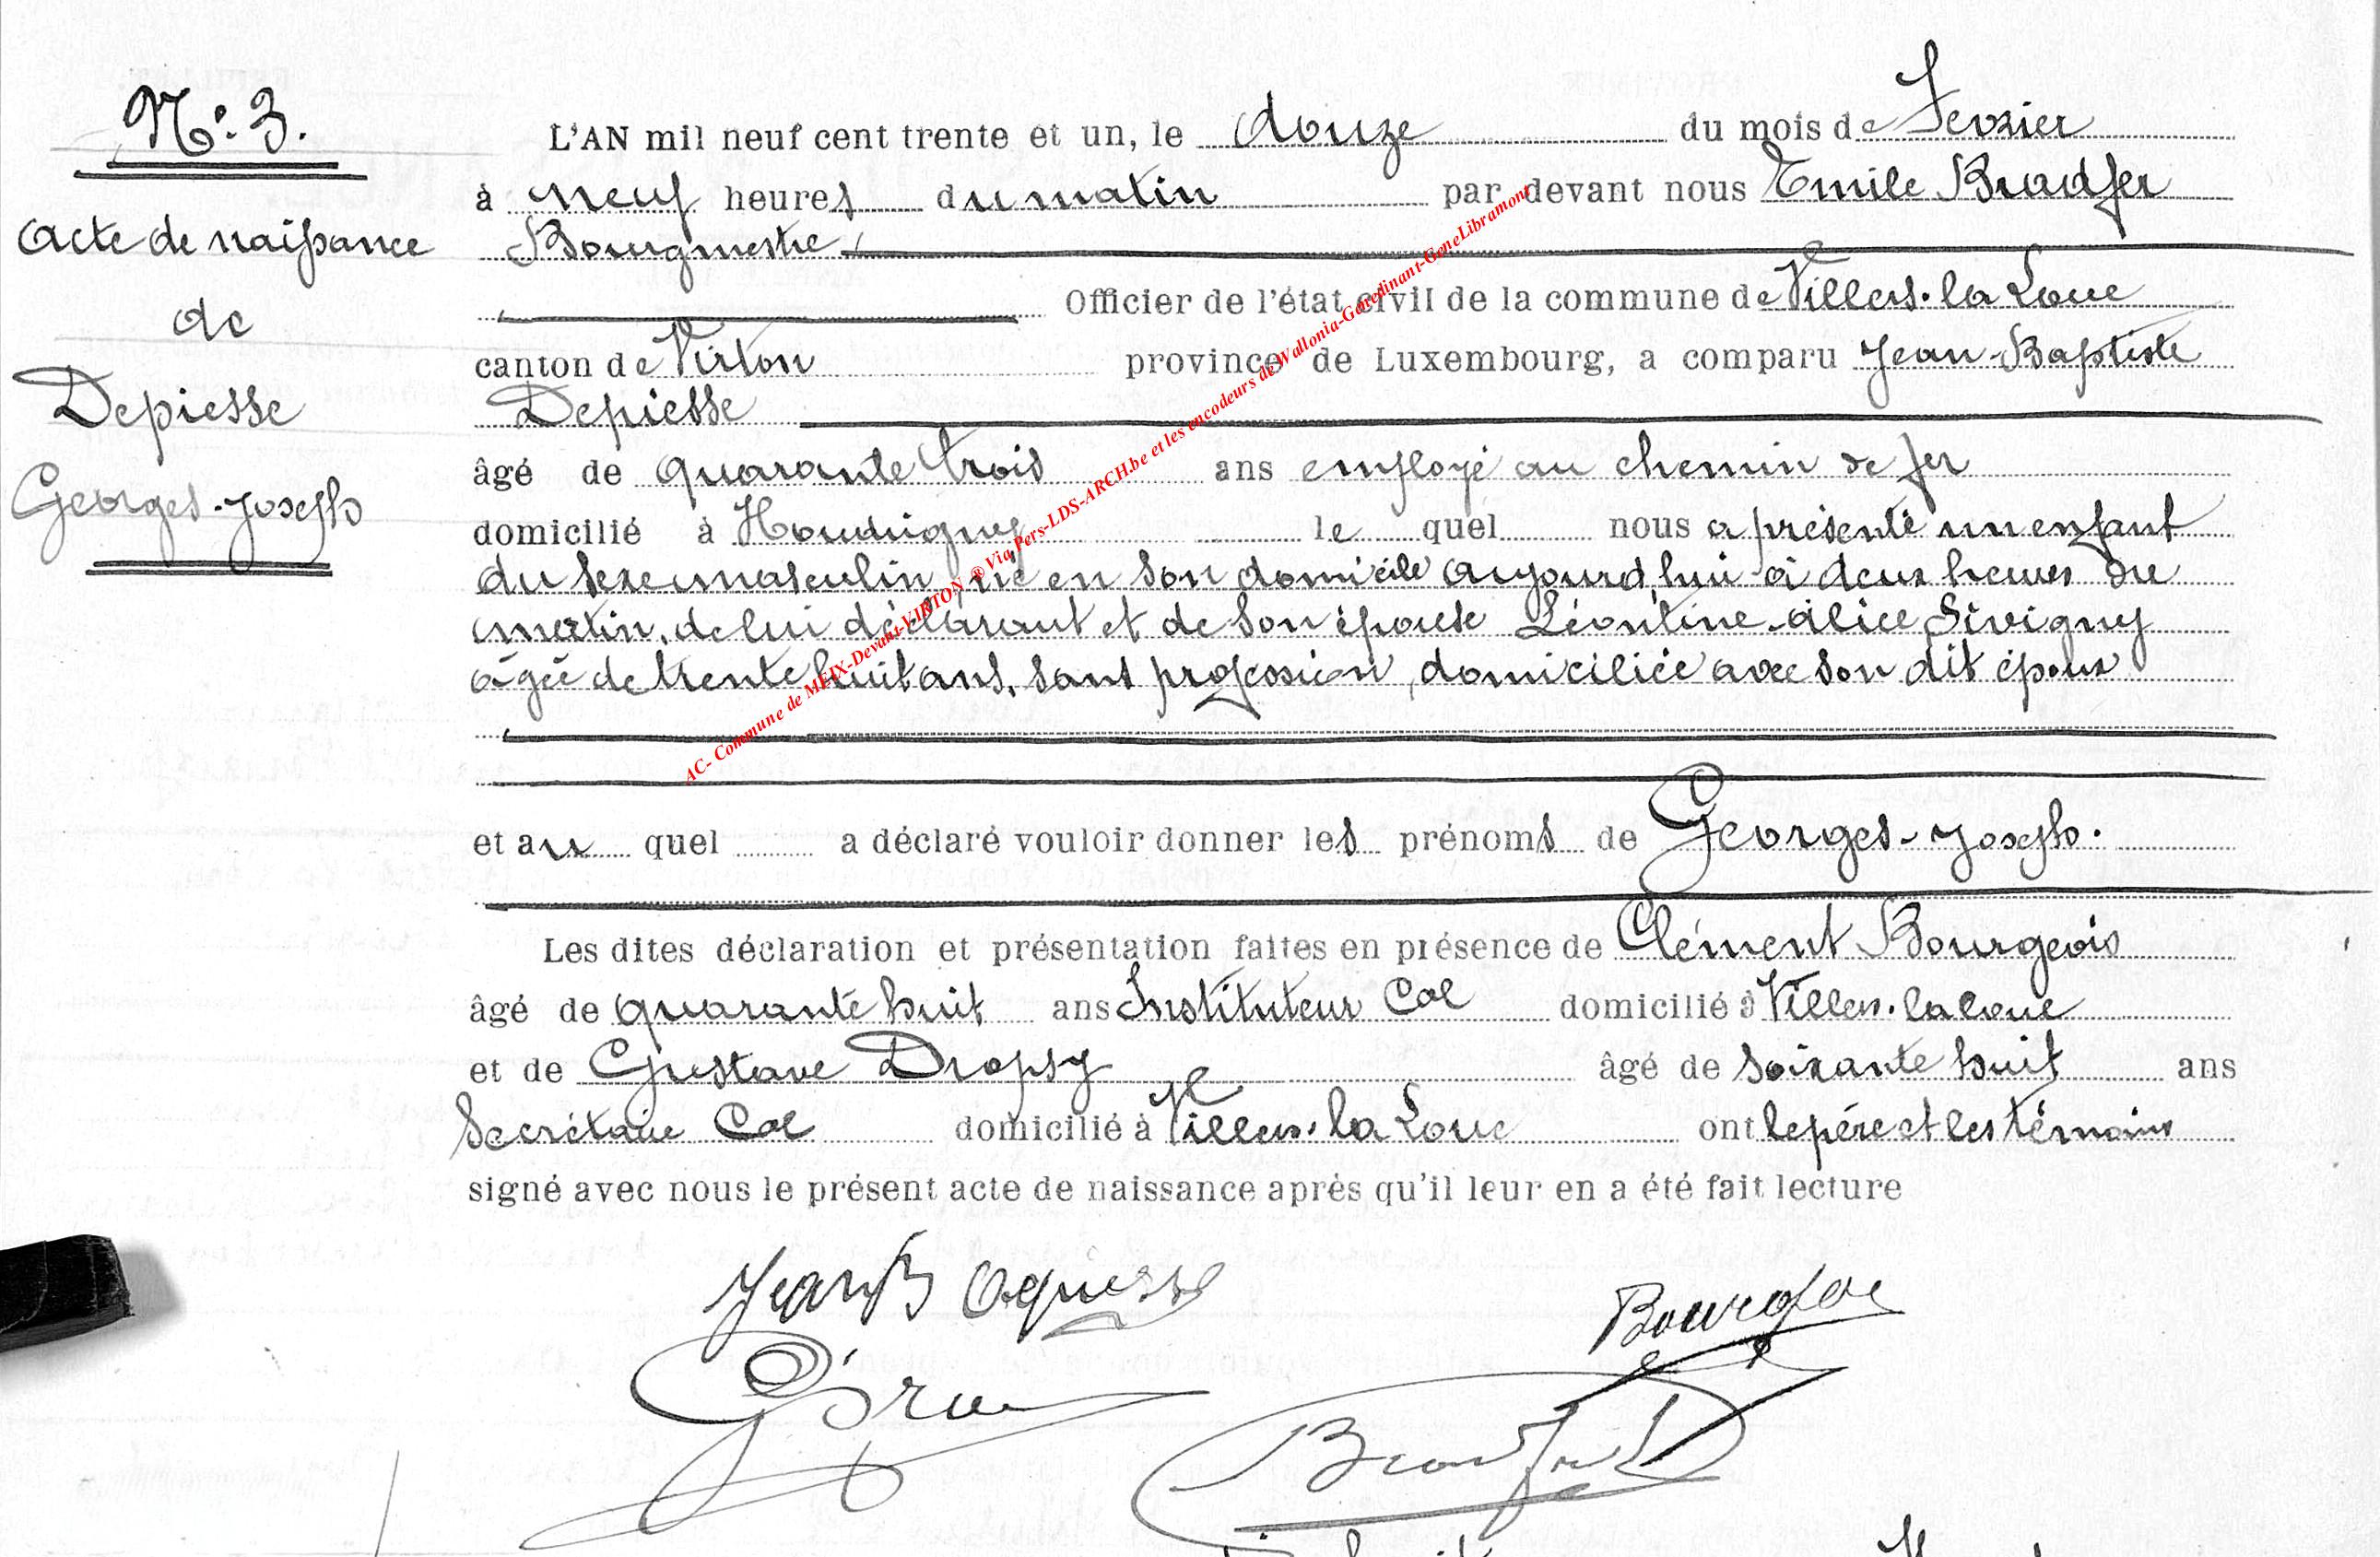 N°. 3.
Acte de naissance
de
Depiesse
Georges-Joseph
L'AN mil neuf cent trente et un, le douze du mois de Fevrier
à neuf heures du matin par devant nous Emile Bradfer
Bourgmestre
Officier de l'état civil de la commune de Villers-la Loue
canton de Virton province de Luxembourg, a comparu Jean-Baptiste
Depiesse
âgé de quarante trois ans employé au chemin de fer
domicilié à Houdrigny le quel nous a présenté un enfant
du sexe masculin, né en son domicile aujourd'hui à deux heures du
matin, de lui déclarant et de son épouse Léontine-Alice Sévigny
âgée de trente huit ans, sans profession, domiciliée avec son dit époux
et au quel a déclaré vouloir donner les prénoms de Georges-Joseph.
Les dites déclaration et présentation faites en présence de Clément Bourgeois
âgé de quarante huit ans Instituteur Cal domicilié à Villers-la Loue
et de Gustave Dropsy âgé de soixante huit ans
Secrétaire Cal domicilié à Villers-la Loue ont le père et les témoins
signé avec nous le présent acte de naissance après qu'il leur en a été fait lecture
Jean B Depiesse
Bourgeois
Bradfer
AC- Commune de MEIX-Devant-VIRTON ® Via Pers-LDS-ARCH.be et les encodeurs de Wallonia-Gavedinant-GeneLibramont